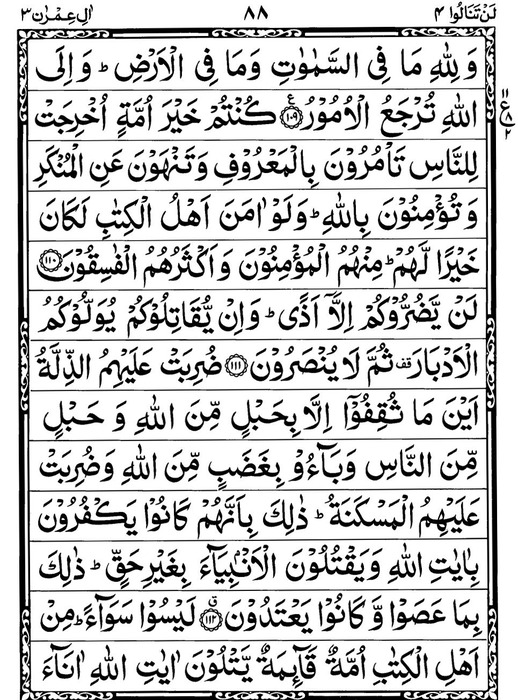 لَنْ تَنَالُوا ٤ ٨٨ اٰلِ عِمْرٰن ٣
وَلِلّٰهِ مَا فِى السَّمٰوٰتِ وَمَا فِى الْاَرْضِ ؕ وَاِلَى
اللّٰهِ تُرْجَعُ الْاُمُوْرُ ﴿۱۰۹﴾ كُنْتُمْ خَيْرَ اُمَّةٍ اُخْرِجَتْ
لِلنَّاسِ تَاْمُرُوْنَ بِالْمَعْرُوْفِ وَتَنْهَوْنَ عَنِ الْمُنْكَرِ
وَتُؤْمِنُوْنَ بِاللّٰهِ ؕ وَلَوْ اٰمَنَ اَهْلُ الْكِتٰبِ لَكَانَ
خَيْرًا لَّهُمْ ؕ مِنْهُمُ الْمُؤْمِنُوْنَ وَاَكْثَرُهُمُ الْفٰسِقُوْنَ ﴿۱۱۰﴾
لَنْ يَّضُرُّوْكُمْ اِلَّاۤ اَذًى ؕ وَاِنْ يُّقَاتِلُوْكُمْ يُوَلُّوْكُمُ
الْاَدْبَارَ ۫ ثُمَّ لَا يُنْصَرُوْنَ ﴿۱۱۱﴾ ضُرِبَتْ عَلَيْهِمُ الذِّلَّةُ
اَيْنَ مَا ثُقِفُوْۤا اِلَّا بِحَبْلٍ مِّنَ اللّٰهِ وَ حَبْلٍ
مِّنَ النَّاسِ وَبَآءُوْ بِغَضَبٍ مِّنَ اللّٰهِ وَضُرِبَتْ
عَلَيْهِمُ الْمَسْكَنَةُ ؕ ذٰلِكَ بِاَنَّهُمْ كَانُوْا يَكْفُرُوْنَ
بِاٰيٰتِ اللّٰهِ وَيَقْتُلُوْنَ الْاَنْۢبِيَآءَ بِغَيْرِ حَقٍّ ؕ ذٰلِكَ
بِمَا عَصَوْا وَّ كَانُوْا يَعْتَدُوْنَ ﴿۱۱۲﴾ لَيْسُوْا سَوَآءً ؕ مِنْ
اَهْلِ الْكِتٰبِ اُمَّةٌ قَآئِمَةٌ يَّتْلُوْنَ اٰيٰتِ اللّٰهِ اٰنَآءَ